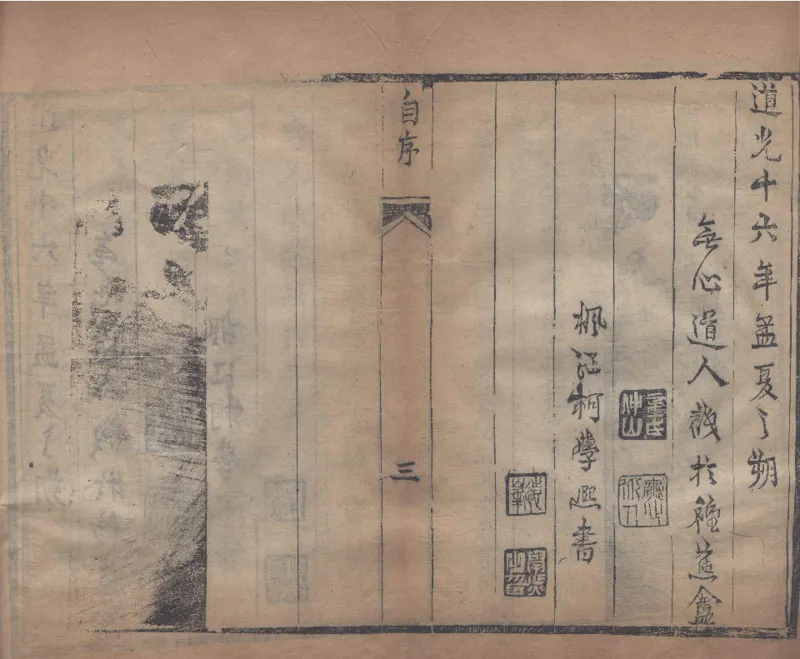 道光十六年孟夏之朔
無心道人識於種蕉盦
楓江柯學書
自序
三